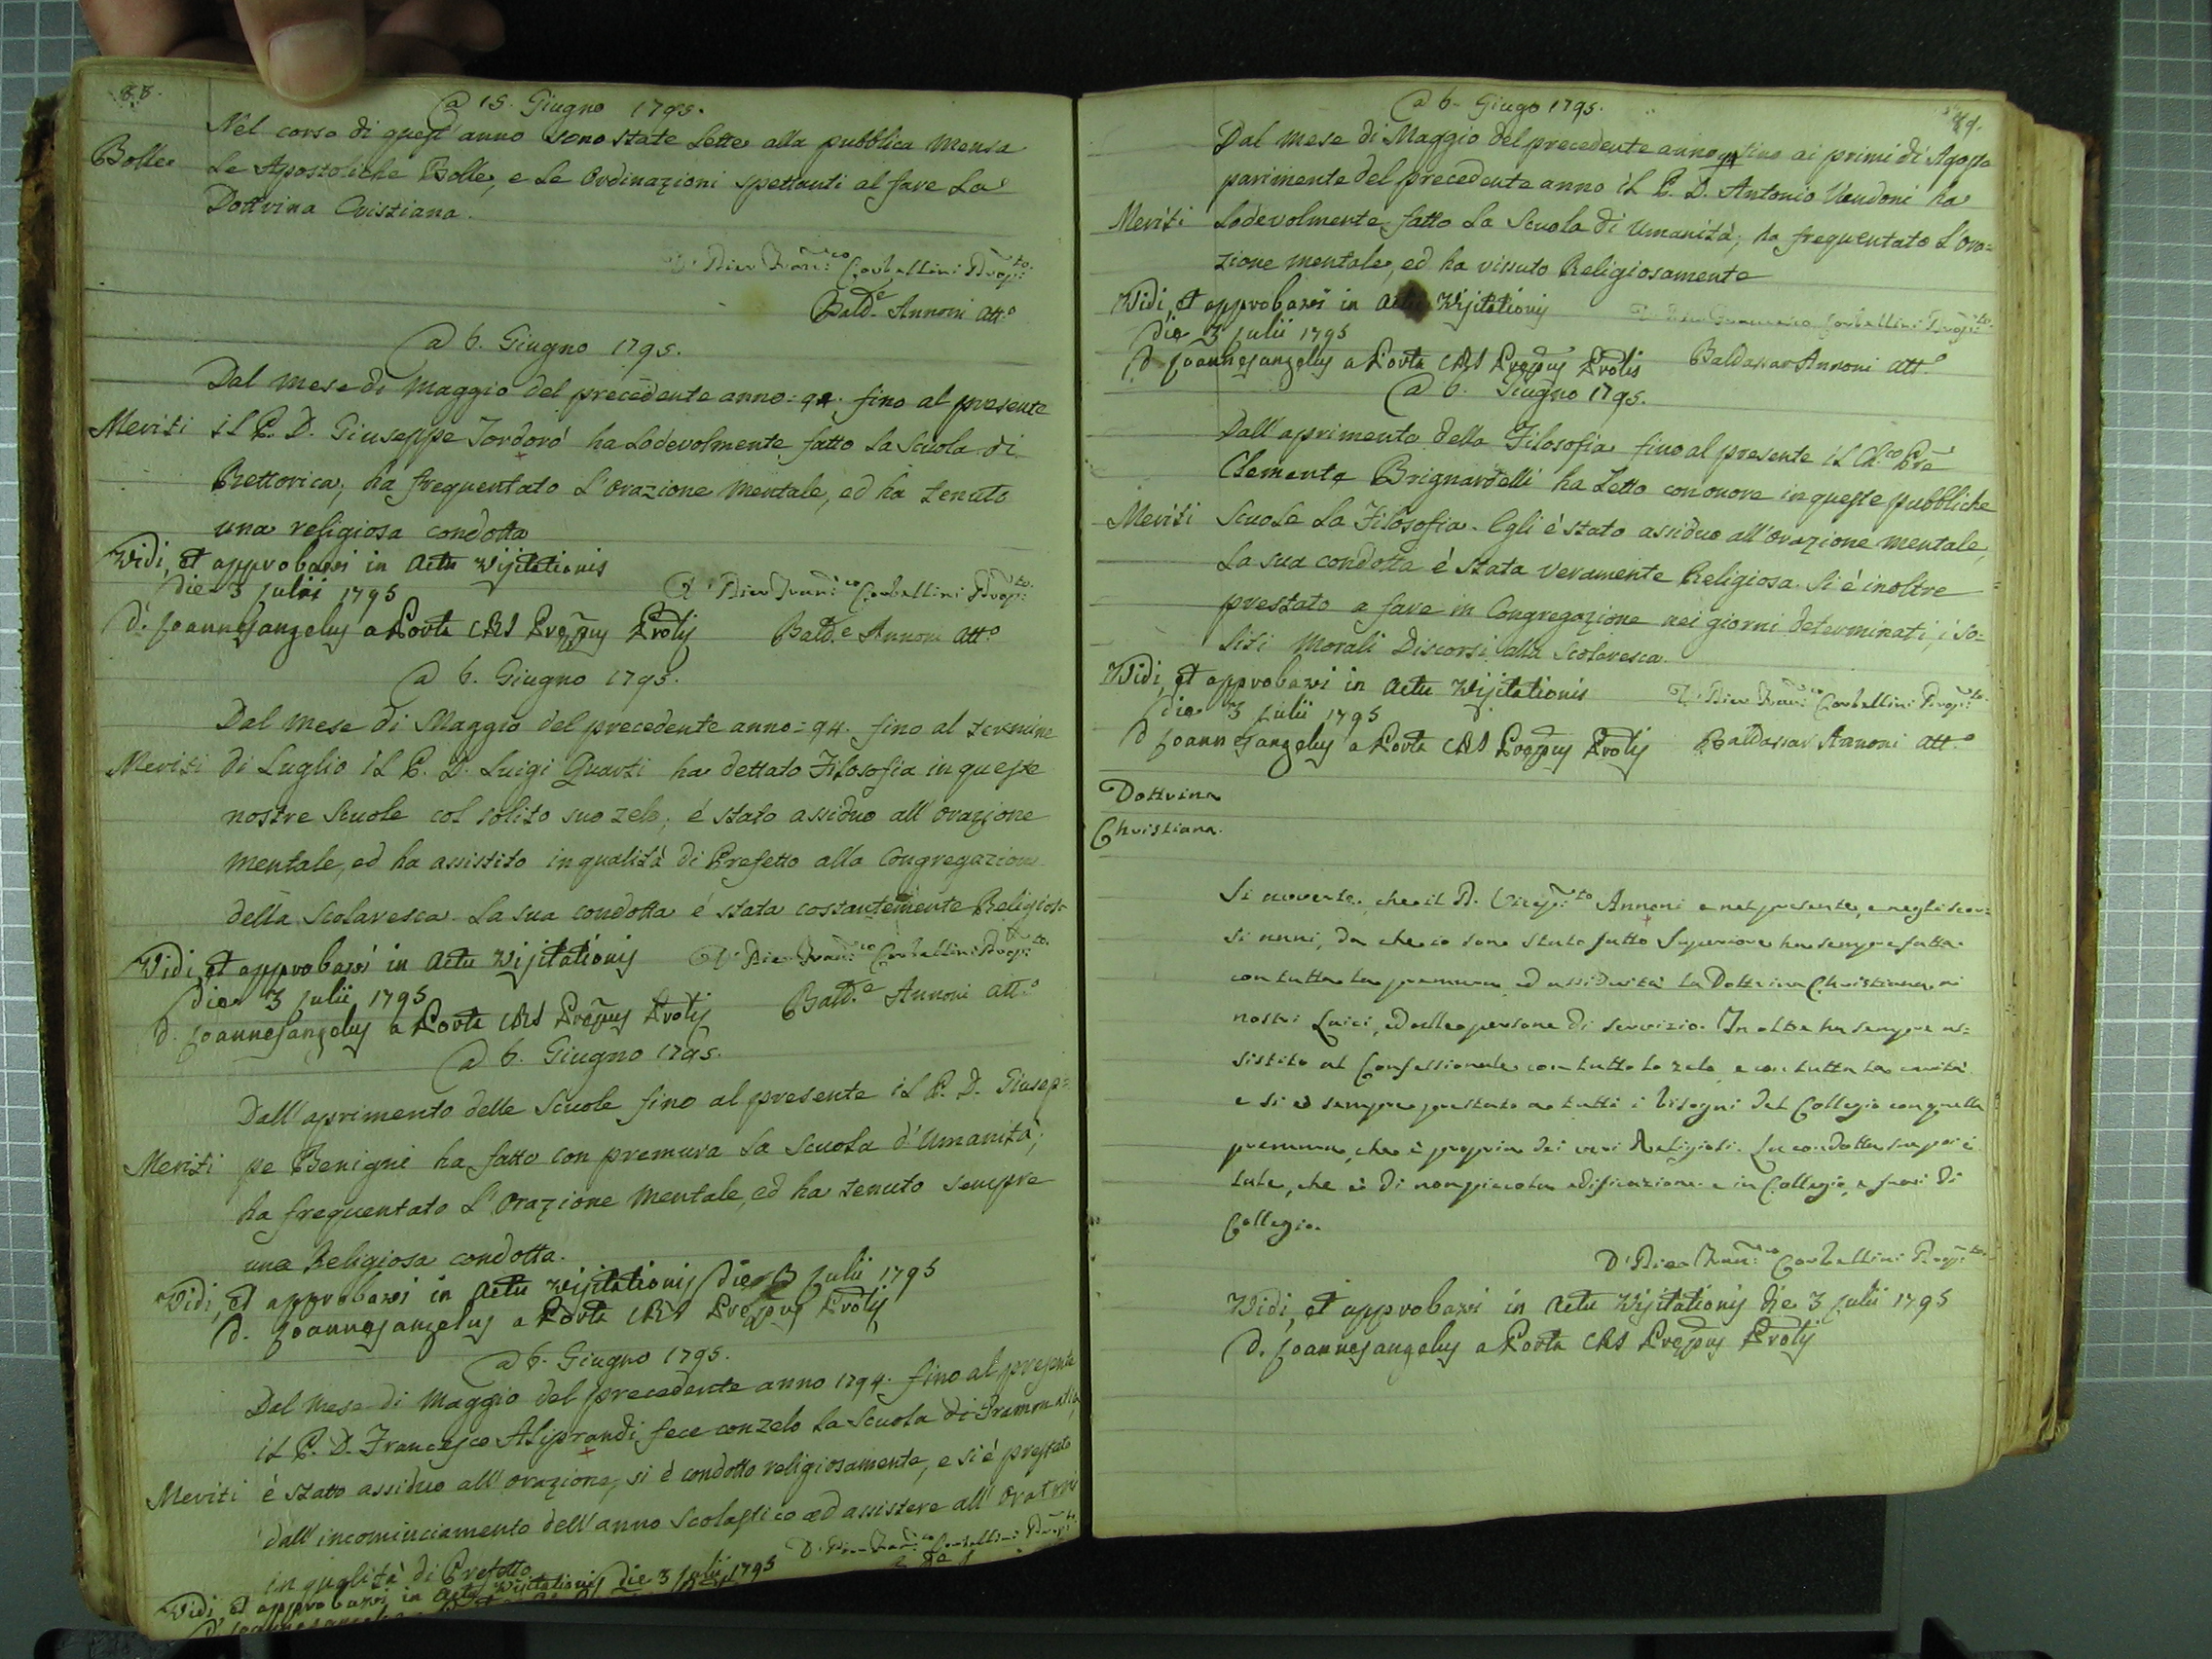 88.
a 15. Giugno 1795.
Nel corso di quest'anno sono state Lette alla pubblica Mensa
Bolle Le Apostoliche Bolle, e Le Ordinazioni spettanti al fare La
Dottrina Cristiana.
D. Pier Fran:co Corbellini Prop:to
Bald.e Annoni Att.o
a 6. Giugno 1795.
Dal Mese di Maggio del precedente anno = 94. fino al presente
Meriti il P. D. Giuseppe Tordorò ha Lodevolmente fatto La Scuola di
Rettorica; ha frequentato L'Orazione Mentale, ed ha tenuto
una religiosa condotta
Vidi, et approbavi in Actu Visitationis
die 3 Julii 1795
D. Joannesangelus a Porta CRS Prepus Prolis
D. Pier Fran:co Corbellini Prop:to
Bald.e Annoni Att.o
a 6. Giugno 1795.
Dal Mese di Maggio del precedente anno = 94. fino al termine
Meriti di Luglio il P. D. Luigi Quarti ha dettato Filosofia in queste
nostre Scuole col solito suo zelo; é stato assiduo all'orazione
Mentale, ed ha assistito in qualità di Prefetto alla Congregazione
della Scolaresca. La sua condotta é stata costantemente Religiosa
Vidi, et approbavi in Actu Visitationis
die 3 Julii 1795
D. Joannesangelus a Porta CRS Prepus Prolis
D. Pier Fran:co Corbellini Prop:to
Bald.e Annoni Att.o
a 6. Giugno 1795.
Dall'aprimento delle Scuole fino al presente il P. D. Giusep=
Meriti pe Benigni ha fatto con premura La Scuola d'Umanità;
ha frequentato L'Orazione Mentale, ed ha tenuto sempre
una Religiosa condotta.
Vidi, et approbavi in Actu Visitationis die 3 Julii 1795
D. Joannesangelus a Porta CRS Prepus Prolis
a 6. Giugno 1795.
Dal Mese di Maggio del precedente anno 1794. fino al presente
il P. D. Francesco Aliprandi fece con zelo La Scuola di Gramatica,
Meriti é stato assiduo all'orazione, si é condotto religiosamente, e si é prestato
dall'incominciamento dell'anno Scolastico ad assistere all'Oratorio
in qualità di Prefetto
D. Pier Fran:co Corbellini Prop:to
Vidi, et approbavi in Actu Visitationis die 3 Julii 1795
89.
a 6. Giugo 1795.
Dal Mese di Maggio del precedente anno fino ai primi di Agosto
parimente del precedente anno il P. D. Antonio Vandoni ha
Meriti Lodevolmente fatto La Scuola di Umanità; ha frequentato L'Ora=
zione mentale, ed ha vissuto Religiosamente
Vidi, et approbavi in Actu Visitationis
die 3 Julii 1795
D. Joannesangelus a Porta CRS Prepus Prolis
D. Pier Francesco Corbellini Prop:to
Baldassar Annoni Att.o
a 6. Giugno 1795.
Dall'aprimento della Filosofia fino al presente il Ch.co Prè
Clemente Brignardelli ha Letto con onore in queste pubbliche
Meriti Scuole La Filosofia. Egli é stato assiduo all'Orazione mentale,
La sua condotta é stata veramente Religiosa. Si é inoltre
prestato a fare in Congregazione nei giorni determinati, i so=
liti Morali Discorsi alla Scolaresca.
Vidi, et approbavi in Actu Visitationis
die 3 Julii 1795
D. Joannesangelus a Porta CRS Prepus Prolis
D. Pier Fran:co Corbellini Prop:to
Baldassar Annoni Att.o
Dottrina
Christiana.
Si avverte, che il P. Vicep:to Annoni e nel presente, e negli scor=
si anni, da che io sono stato fatto Superiore ha sempre fatta
con tutta la premura, ed assiduità la Dottrina Christiana ai
nostri Laici, ed alle persone di servizio. In oltre ha sempre as=
sistito al Confessionale con tutto lo zelo, e con tutta la carità
e si è sempre prestato a tutti i bisogni del Collegio con quella
premura, che è propria dei veri Religiosi. La condotta sua poi è
tale, che è di non piccola edificazione e in Collegio, e fuori di
Collegio.
D. Pier Fran:co Corbellini Prop:to
Vidi, et approbavi in Actu Visitationis die 3 Julii 1795
D. Joannesangelus a Porta CRS Prepus Prolis